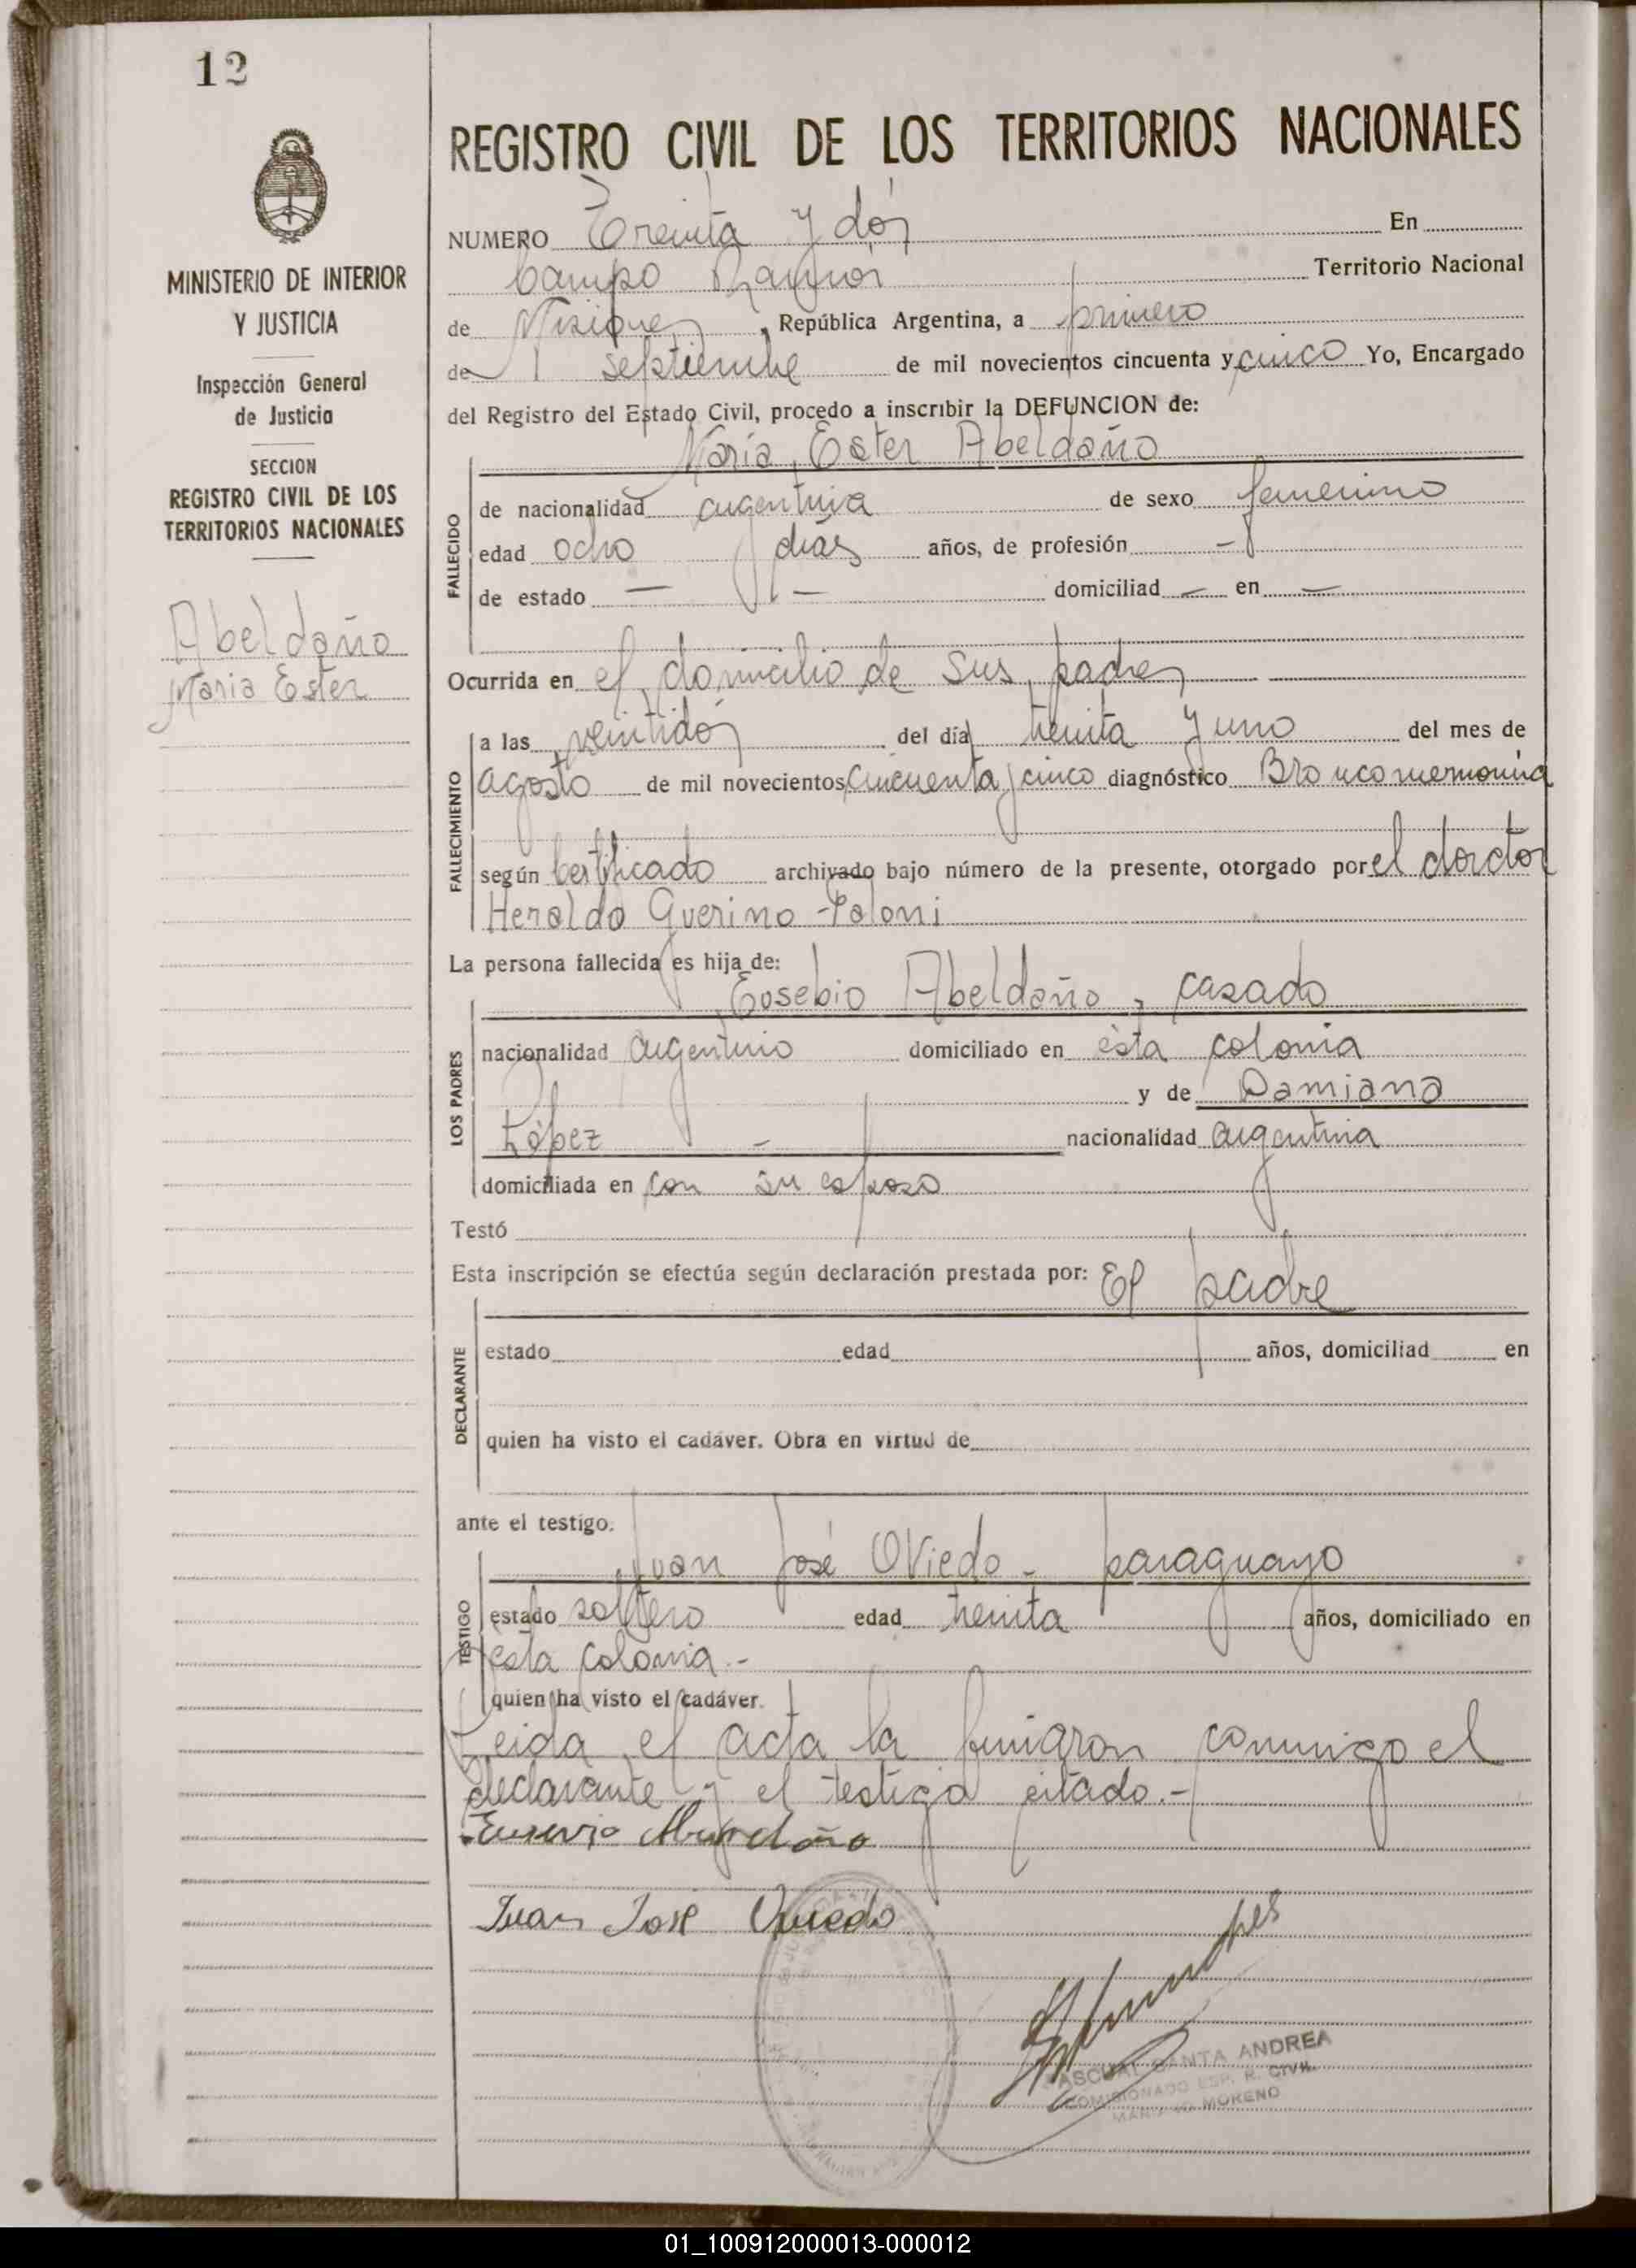 12
MINISTERIO DE INTERIOR
Y JUSTICIA
Inspección General
de Justicia
SECCION
REGISTRO CIVIL DE LOS
TERRITORIOS NACIONALES
Abeldaño
Maria Ester
REGISTRO CIVIL DE LOS TERRITORIOS NACIONALES
NUMERO Treinta y dos En
Campo Ramón Territorio Nacional
de Misiones, República Argentina, a primero
de septiembre de mil novecientos cincuenta y cinco Yo, Encargado
del Registro del Estado Civil, procedo a inscribir la DEFUNCION de:
María Ester Abeldaño
FALLECIDO
de nacionalidad argentina de sexo femenino
edad ocho días años, de profesión -
de estado — — domiciliad — en —
Ocurrida en el domicilio de sus padres
FALLECIMIENTO
a las veintidós del día treinta y uno del mes de
agosto de mil novecientos cincuenta y cinco diagnóstico Bronconeumonía
según certificado archivado bajo número de la presente, otorgado por el doctor
Heraldo Guerino
La persona fallecida es hija de:
Eusebio Abeldaño, casado
LOS PADRES
nacionalidad argentino domiciliado en ésta colonia
y de Damiana
López - nacionalidad argentina
domiciliada en con su esposo
Testó
Esta inscripción se efectúa según declaración prestada por: El padre
DECLARANTE
estado edad años, domiciliad en
quien ha visto el cadáver. Obra en virtud de
ante el testigo.
Juan José Oviedo - paraguayo
TESTIGO
estado soltero edad treinta años, domiciliado en
ésta colonia.-
quien ha visto el cadáver.
Leida el acta la firmaron conmigo el
declarante y el testigo citado.-
Juan José Oviedo
PASCUAL SANTA ANDREA
COMISIONADO ESP. R. CIVIL
MARIANO MORENO
01_100912000013-000012